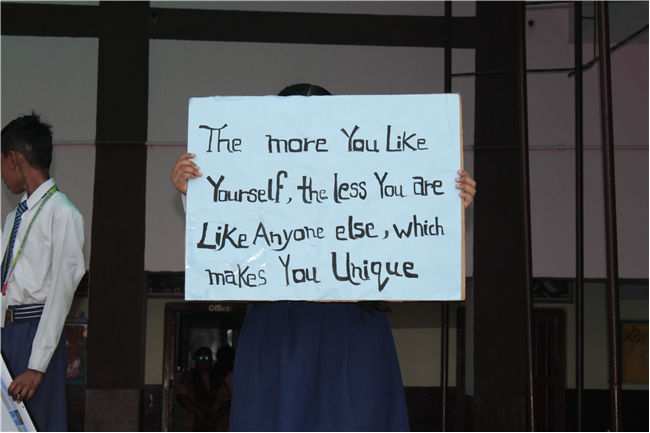 The more You Like
Yourself, the less You are
Like Anyone else, which
makes You Unique
Office